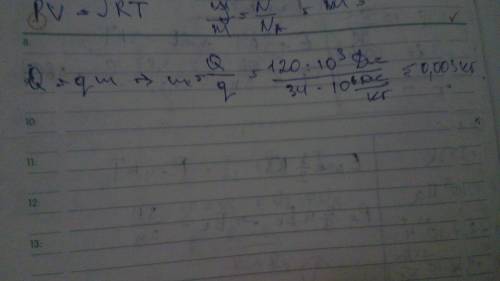 PV = νRT m/M = N/Nₐ
9.
Q = qm ⇒ m = Q/q = 120·10³ Дж / 34·10⁶ Дж/кг = 0,003 кг.
10.
11.
12.
13.